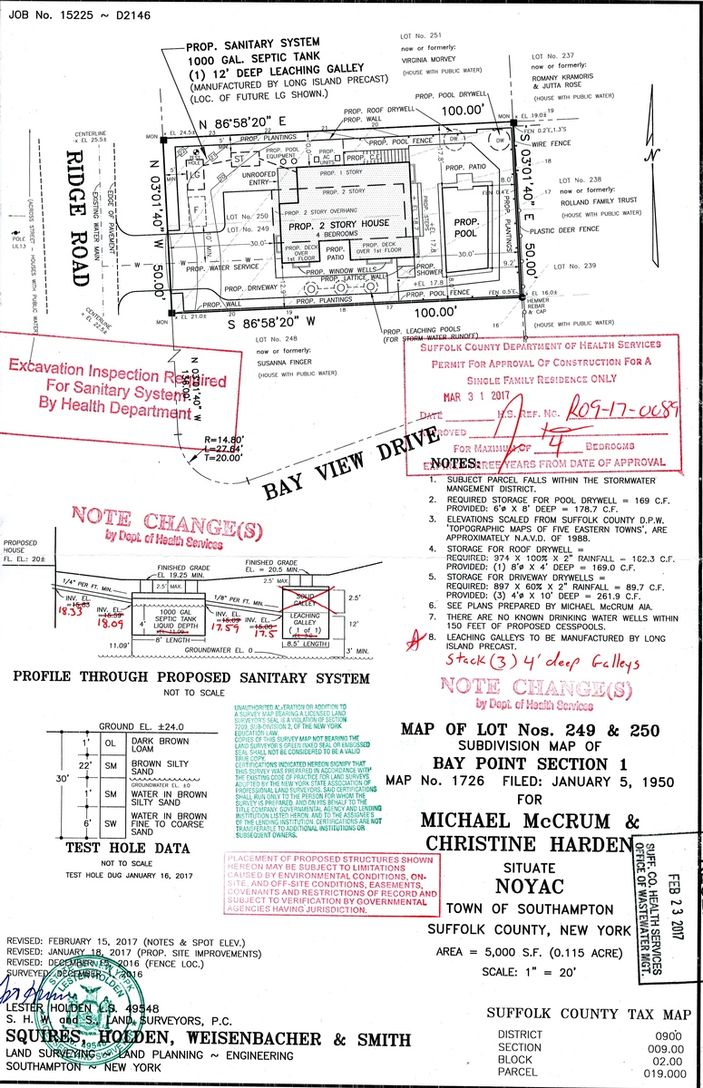 JOB No. 15225 ~ D2146
PROP. SANITARY SYSTEM
1000 GAL. SEPTIC TANK
(1) 12' DEEP LEACHING GALLEY
(MANUFACTURED BY LONG ISLAND PRECAST)
(LOC. OF FUTURE LG SHOWN.)
LOT No. 251
now or formerly:
VIRGINIA MORVEY
(HOUSE WITH PUBLIC WATER)
LOT No. 237
now or formerly:
ROMANY KRAMORIS
& JUTTA ROSE
(HOUSE WITH PUBLIC WATER)
PROP. ROOF DRYWELL
PROP. POOL DRYWELL
PROP. WALL
N 86°58'20" E
100.00'
PROP. PLANTINGS
PROP. POOL FENCE
WIRE FENCE
CENTERLINE
x EL 25.5±
RIDGE ROAD
EDGE OF PAVEMENT
EXISTING WATER MAIN
(ACROSS STREET - HOUSES WITH PUBLIC WATER)
POLE
N 03°01'40" W
50.00'
ST
LG
F
PROP. POOL
EQUIPMENT
PROP.
AC
UNITS
UNROOFED
ENTRY
PROP. 1 STORY
PROP. 2 STORY
PROP. 2 STORY OVERHANG
PROP. 2 STORY HOUSE
4 BEDROOMS
PROP. DECK
OVER
1st FLOOR
PROP.
PATIO
PROP. DECK
OVER 1st FLOOR
PROP. PATIO
PROP.
POOL
30.0'
LOT No. 250
LOT No. 249
30.0'
PROP. WATER SERVICE
PROP. WINDOW WELLS
PROP. LATTICE WALL
PROP.
SHOWER
PROP. DRIVEWAY
PROP. WALL
PROP. PLANTINGS
PROP. POOL FENCE
+EL 17.8
N 03°01'40" E
50.00'
PROP. PLANTINGS
LOT No. 238
now or formerly:
ROLLAND FAMILY TRUST
(HOUSE WITH PUBLIC WATER)
PLASTIC DEER FENCE
LOT No. 239
HEMMER
REBAR
& CAP
(HOUSE WITH PUBLIC WATER)
S 86°58'20" W
100.00'
PROP. LEACHING POOLS
(FOR STORM WATER RUNOFF)
LOT No. 248
now or formerly:
SUSANNA FINGER
(HOUSE WITH PUBLIC WATER)
Excavation Inspection Required
For Sanitary System
By Health Department
N 03°01'40" W
R=14.80'
L=27.64'
T=20.00'
BAY VIEW DRIVE
SUFFOLK COUNTY DEPARTMENT OF HEALTH SERVICES
PERMIT FOR APPROVAL OF CONSTRUCTION FOR A
SINGLE FAMILY RESIDENCE ONLY
MAR 31 2017
DATE H.S. REF. NO. R09-17-0089
APPROVED
FOR MAXIMUM OF 4 BEDROOMS
EXPIRES THREE YEARS FROM DATE OF APPROVAL
NOTES:
1. SUBJECT PARCEL FALLS WITHIN THE STORMWATER
MANGEMENT DISTRICT.
2. REQUIRED STORAGE FOR POOL DRYWELL = 169 C.F.
PROVIDED: 6'ø X 8' DEEP = 178.7 C.F.
3. ELEVATIONS SCALED FROM SUFFOLK COUNTY D.P.W.
'TOPOGRAPHIC MAPS OF FIVE EASTERN TOWNS', ARE
APPROXIMATELY N.A.V.D. OF 1988.
4. STORAGE FOR ROOF DRYWELL =
REQUIRED: 974 X 100% X 2" RAINFALL = 162.3 C.F.
PROVIDED: (1) 8'ø X 4' DEEP = 169.0 C.F.
5. STORAGE FOR DRIVEWAY DRYWELLS =
REQUIRED: 897 X 60% X 2" RAINFALL = 89.7 C.F.
PROVIDED: (3) 4'ø X 10' DEEP = 261.9 C.F.
6. SEE PLANS PREPARED BY MICHAEL McCRUM AIA.
7. THERE ARE NO KNOWN DRINKING WATER WELLS WITHIN
150 FEET OF PROPOSED CESSPOOLS.
8. LEACHING GALLEYS TO BE MANUFACTURED BY LONG
ISLAND PRECAST.
Stack (3) 4' deep Galleys
NOTE CHANGE(S)
by Dept. of Health Services
NOTE CHANGE(S)
by Dept. of Health Services
PROPOSED
HOUSE
FL. EL: 20±
FINISHED GRADE
EL 19.25 MIN.
FINISHED GRADE
EL = 20.5 MIN.
2.5' MAX.
2.5' MAX.
1/4" PER FT. MIN.
1/8" PER FT. MIN.
INV. EL.
18.33
INV. EL.
18.09
INV. EL.
17.59
INV. EL.
17.5
1000 GAL
SEPTIC TANK
LIQUID DEPTH
4'
8' LENGTH
SOLID
GALLEY
LEACHING
GALLEY
(1 of 1)
8.5' LENGTH
2.5'
12'
3' MIN.
11.09'
GROUNDWATER EL. 0
PROFILE THROUGH PROPOSED SANITARY SYSTEM
NOT TO SCALE
GROUND EL. ±24.0
1' OL DARK BROWN
LOAM
22' SM BROWN SILTY
SAND
GROUNDWATER EL. ±0
1' SM WATER IN BROWN
SILTY SAND
6' SW WATER IN BROWN
FINE TO COARSE
SAND
30'
TEST HOLE DATA
NOT TO SCALE
TEST HOLE DUG JANUARY 16, 2017
UNAUTHORIZED ALTERATION OR ADDITION TO
A SURVEY MAP BEARING A LICENSED LAND
SURVEYOR'S SEAL IS A VIOLATION OF SECTION
7209, SUB-DIVISION 2, OF THE NEW YORK
EDUCATION LAW.
COPIES OF THIS SURVEY MAP NOT BEARING THE
LAND SURVEYOR'S GREEN INKED SEAL OR EMBOSSED
SEAL SHALL NOT BE CONSIDERED TO BE A VALID
TRUE COPY.
CERTIFICATIONS INDICATED HEREON SIGNIFY THAT
THIS SURVEY WAS PREPARED IN ACCORDANCE WITH
THE EXISTING CODE OF PRACTICE FOR LAND SURVEYS
ADOPTED BY THE NEW YORK STATE ASSOCIATION OF
PROFESSIONAL LAND SURVEYORS. SAID CERTIFICATIONS
SHALL RUN ONLY TO THE PERSON FOR WHOM THE
SURVEY IS PREPARED, AND ON HIS BEHALF TO THE
TITLE COMPANY, GOVERNMENTAL AGENCY AND LENDING
INSTITUTION LISTED HEREON, AND TO THE ASSIGNEES
OF THE LENDING INSTITUTION. CERTIFICATIONS ARE NOT
TRANSFERABLE TO ADDITIONAL INSTITUTIONS OR
SUBSEQUENT OWNERS.
PLACEMENT OF PROPOSED STRUCTURES SHOWN
HEREON MAY BE SUBJECT TO LIMITATIONS
CAUSED BY ENVIRONMENTAL CONDITIONS, ON-
SITE, AND OFF-SITE CONDITIONS, EASEMENTS,
COVENANTS AND RESTRICTIONS OF RECORD AND
SUBJECT TO VERIFICATION BY GOVERNMENTAL
AGENCIES HAVING JURISDICTION.
MAP OF LOT Nos. 249 & 250
SUBDIVISION MAP OF
BAY POINT SECTION 1
MAP No. 1726 FILED: JANUARY 5, 1950
FOR
MICHAEL McCRUM &
CHRISTINE HARDEN
SITUATE
NOYAC
TOWN OF SOUTHAMPTON
SUFFOLK COUNTY, NEW YORK
AREA = 5,000 S.F. (0.115 ACRE)
SCALE: 1" = 20'
SUFF. CO. HEALTH SERVICES
OFFICE OF WASTEWATER MGT.
FEB 23 2017
REVISED: FEBRUARY 15, 2017 (NOTES & SPOT ELEV.)
REVISED: JANUARY 18, 2017 (PROP. SITE IMPROVEMENTS)
REVISED: DECEMBER 15, 2016 (FENCE LOC.)
SURVEYED: DECEMBER 2016
LESTER HOLDEN L.S. 49548
S. H. W. and S., LAND SURVEYORS, P.C.
SQUIRES, HOLDEN, WEISENBACHER & SMITH
LAND SURVEYING ~ LAND PLANNING ~ ENGINEERING
SOUTHAMPTON ~ NEW YORK
SUFFOLK COUNTY TAX MAP
DISTRICT 0900
SECTION 009.00
BLOCK 02.00
PARCEL 019.000